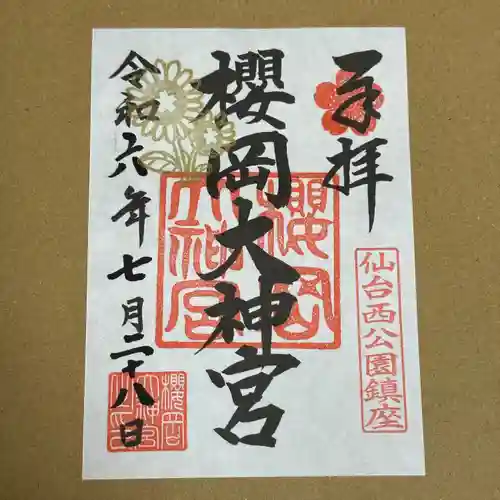 奉拝
仙台西公園鎮座
櫻岡大神宮
櫻岡大神宮
令和六年七月二十八日